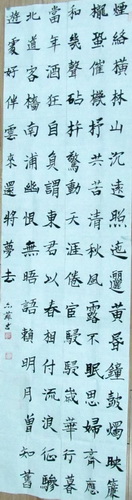 煙絡橫林山沉遠照迤邐黃昏鐘鼓燭映簾
櫳蛩催機杼共苦清秋風露不眠思婦齊應
和幾聲砧杵驚動天涯倦宦駸駸歲華行暮
當年酒狂自負謂東君以春相付流浪征驂
北道客檣南浦幽恨無晤語賴明月曾知舊
遊處好伴雲來還將夢去